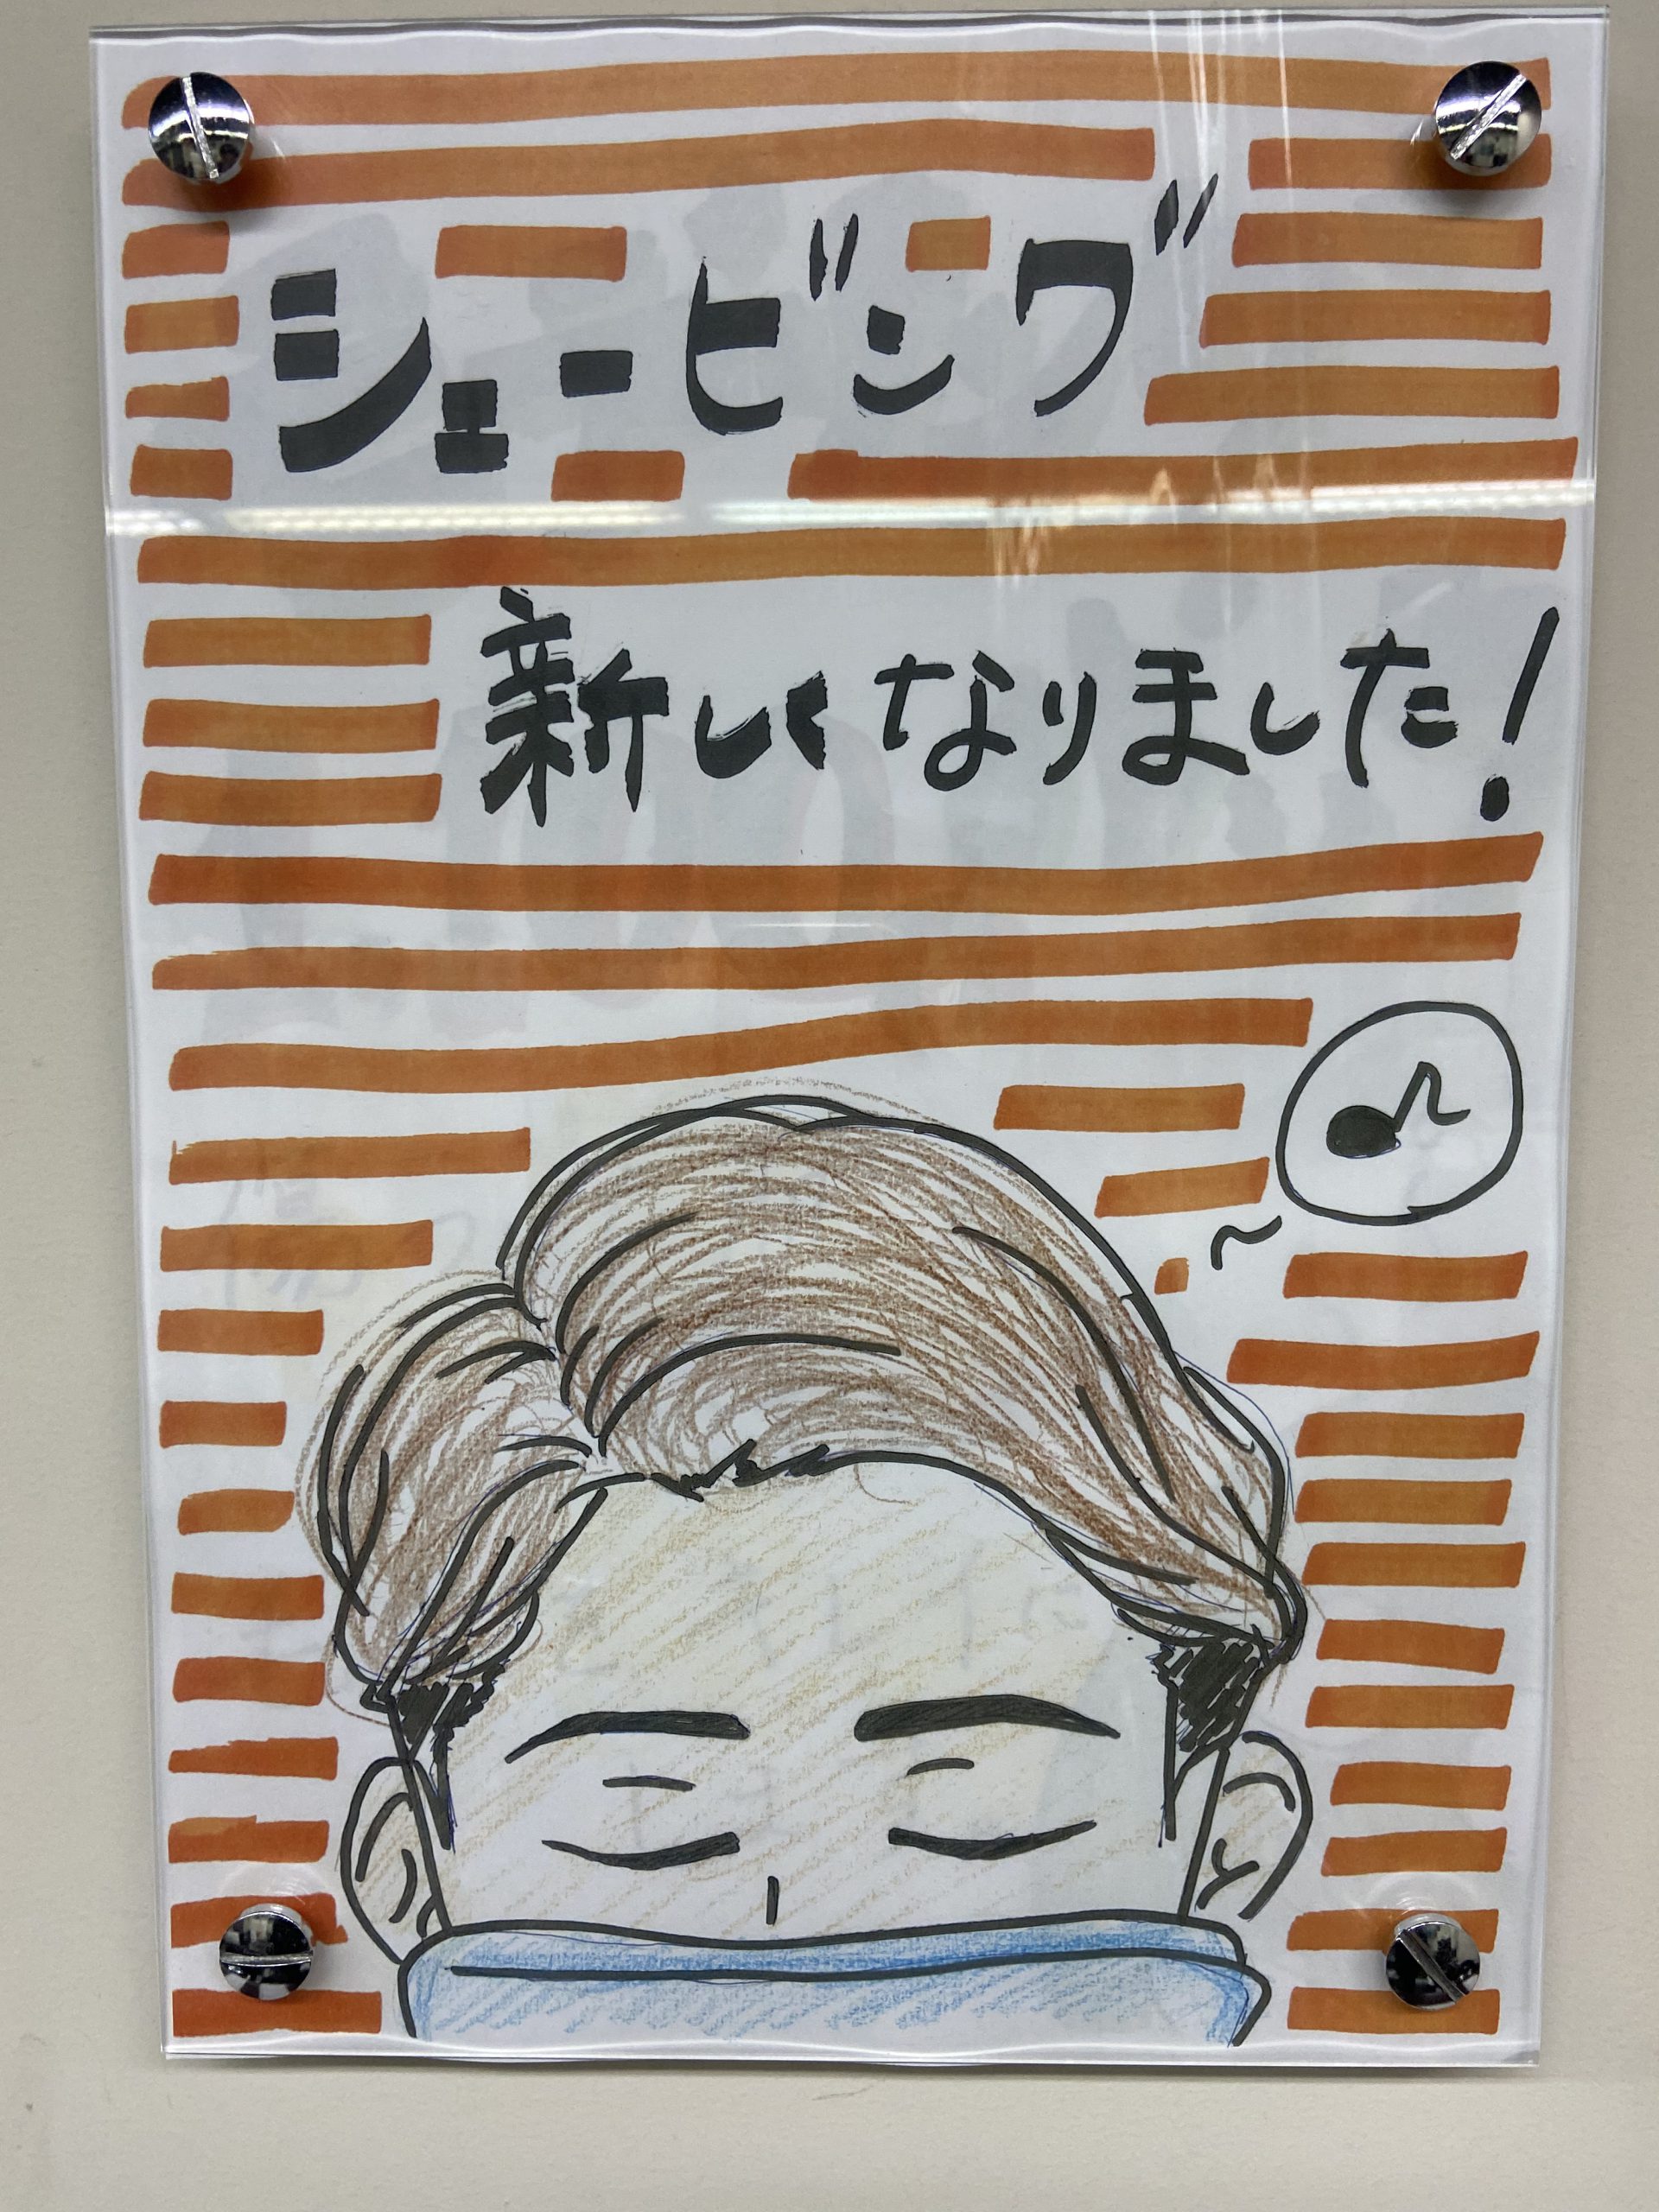 シェービング
新しくなりました!